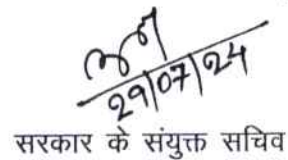 29/07/24
सरकार के संयुक्त सचिव